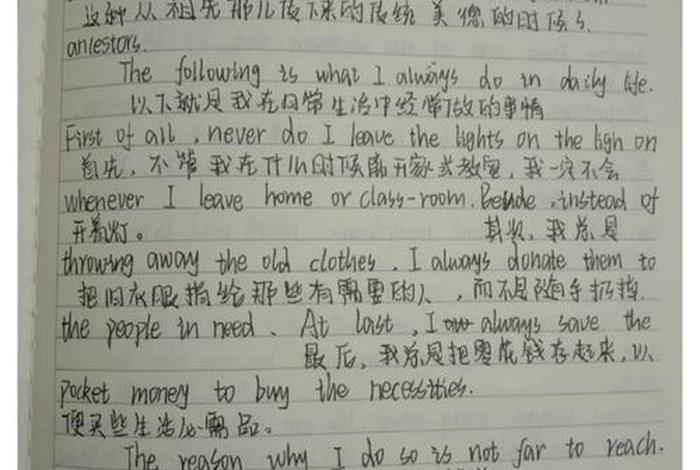 这种从祖先那儿传下来的传统美德的时候了
ancestors.
The following is what I always do in daily life.
以下就是我在日常生活中经常做的事情
First of all, never do I leave the lights on the ligh on
首先,不管我在什么时候离开家或教室,我一定不会
whenever I leave home or class-room. Beside, instead of
开着灯。 其次,我总是
throwing away the old clothes, I always donate them to
把旧衣服捐给那些有需要的人,而不是随手扔掉.
the people in need. At last, I always save the
最后,我总是把零花钱存起来,以
pocket money to buy the necessities.
便买些生活必需品。
The reason why I do so is not far to reach.